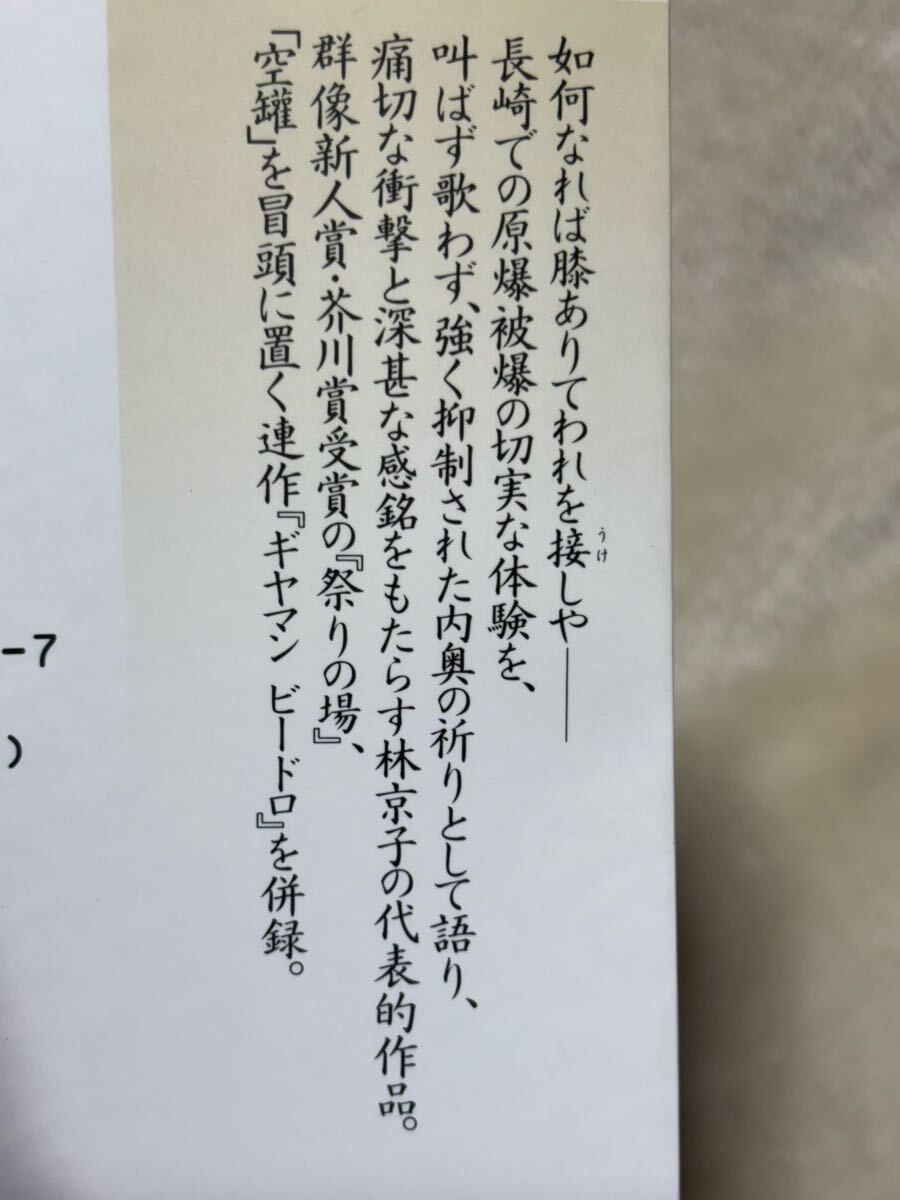 如何なれば膝ありてわれを接しや――
うけ
長崎での原爆被爆の切実な体験を、
叫ばず歌わず、強く抑制された内奥の祈りとして語り、
痛切な衝撃と深甚な感銘をもたらす林京子の代表的作品。
群像新人賞・芥川賞受賞の『祭りの場』、
「空罐」を冒頭に置く連作『ギヤマン ビードロ』を併録。
-7
)